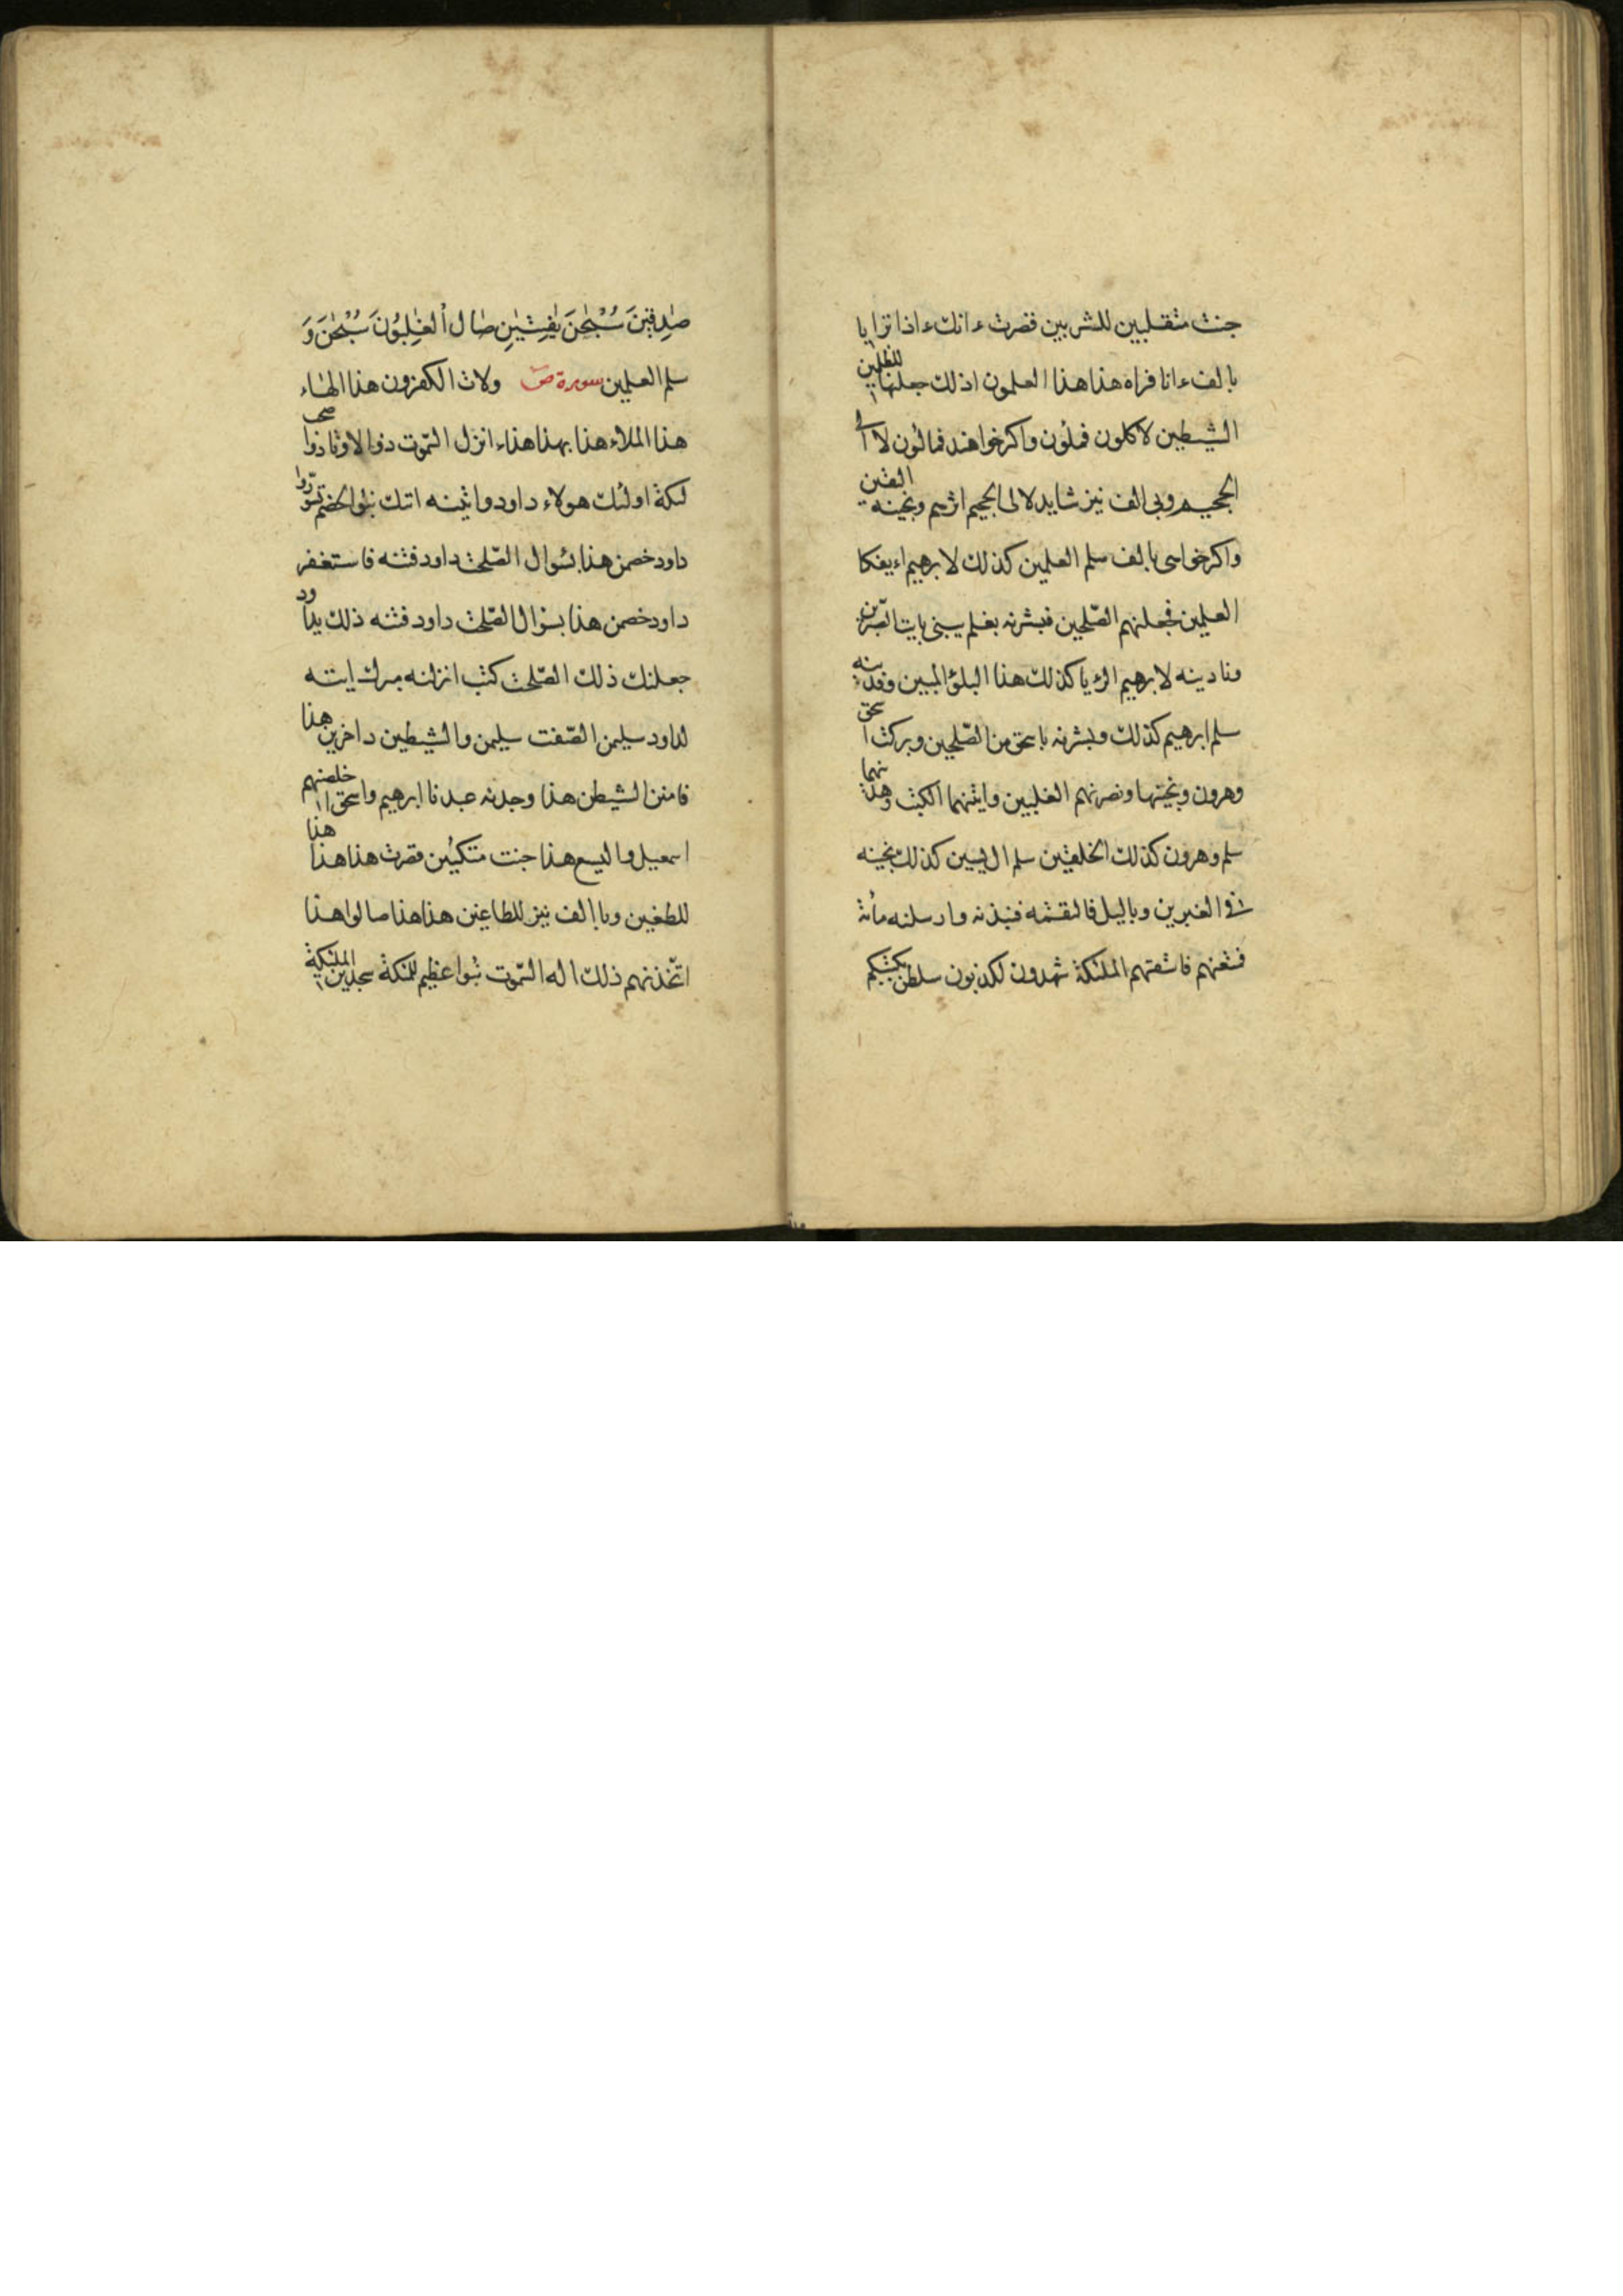 جنت متقبلين للشربين قصرت ءانك ءاذا ترابا يا
بالف ءانا فراه هذا هذا العلمون اذلك جعلنها للظلمين
الشيطين لاكلون فملؤن واكر خواهند فمالؤن لا الى
الجحيم وبى الف نيز شايد لالى الجحيم اثرهم ونجينه العلمين
واكر خواسى بالف سلم العلمين كذلك لابرهيم اءيفكا
العلمين فجعلنهم الصلحين فبشرنه بغلم يبنى يابت الصبرين
ونادينه لابرهيم الرءيا كذلك هذا البلؤ المبين وفدينه
سلم ابرهيم كذلك وبشرنه باسحق من الصلحين وبركنا اسحق
وهرون ونجينهما ونصرنهم الغلبين واتينهما الكتب وهدينهما
سلم وهرون كذلك الخلقين سلم ال يسين كذلك نجينه
فى الغبرين وباليل فالتقمه فنبذنه وارسلنه مائة
فمتعنهم فاستفتهم الملئكة شهدون لكذبون سلطن بكتبكم
صٰدِقِينَ سُبْحٰنَ بِفٰتِنِينَ صال الغٰلِبُونَ سُبْحٰنَ وَ
سلم العلمين سورة ص ولات الكفرون هذا الهاء
هذا الملاء هذا بهذا هذاء انزل السموت ذوا لاوتاد واصحب
لئكة اولئك هولاء داود واتينه اتك نبؤا الخصم تسوروا
داود خصمن هذا بسؤال الصلحت داود فتنه فاستغفر
داود خصمن هذا بسؤال الصلحت داود فتنه ذلك يداود
جعلنك ذلك الصلحت كتب انزلنه مبرك ايته
لداود سليمن الصفنت سليمن والشيطين داخرين هذا
فامنن الشيطن هذا وجدنه عبدنا ابرهيم واسحق اخلصنهم
اسمعيل واليسع هذا جنت متكئين قصرت هذا هذا هذا
للطغين وبا الف نيز للطاغين هذا هذا صالوا هذا
اتخذنهم ذلك اله السموت نبؤا عظيم للملئكة سجدين الملئكة